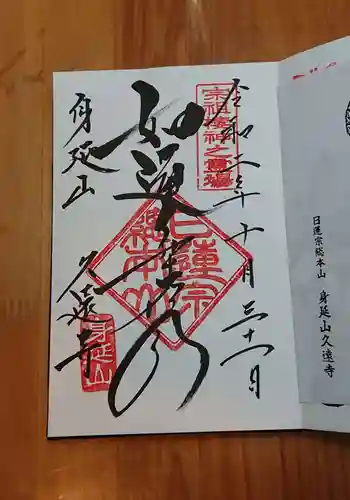 宗祖棲神之霊場
令和二年十月三十一日
如蓮華在水
日蓮宗
総本山
身延山
久遠寺
身延山
日蓮宗総本山 身延山久遠寺